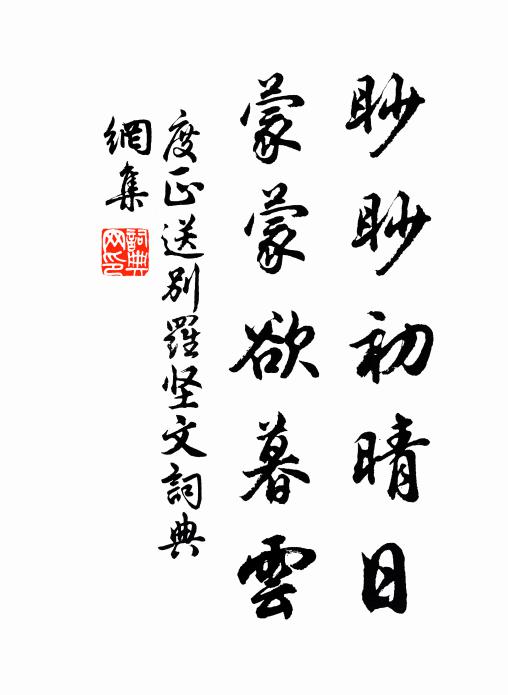 眇眇初晴日
蒙蒙欲暮雲
度正送別羅坚文詞典
網集
詞典
网印